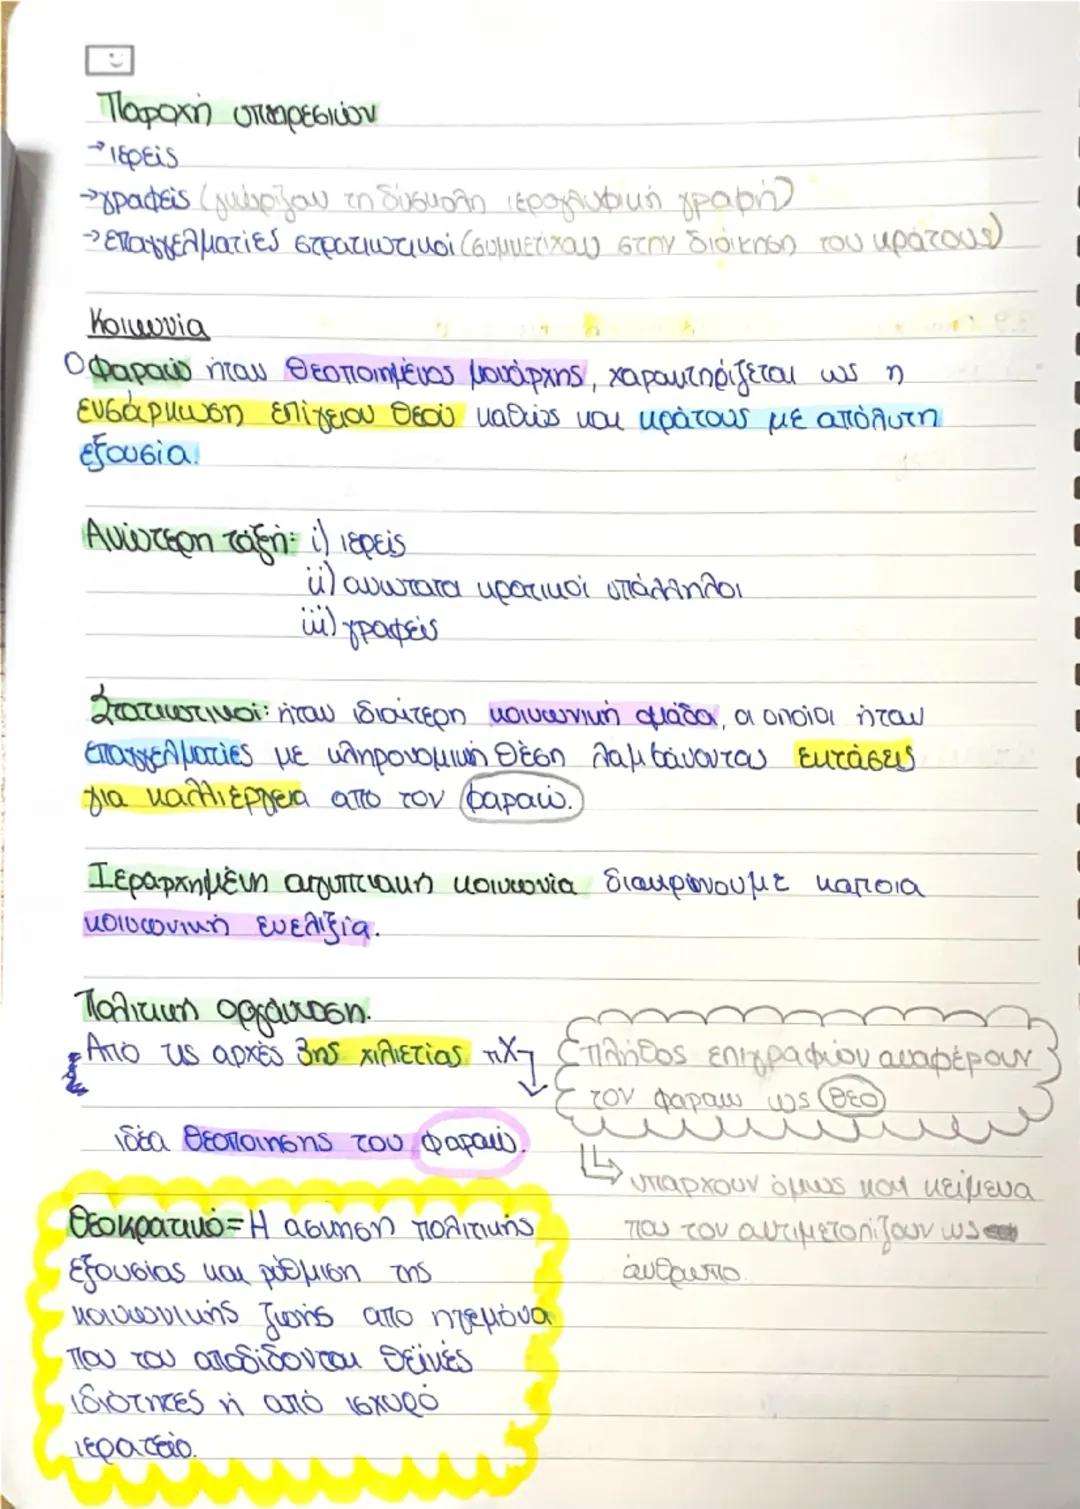 Παροχή υπηρεσιών
→ ιερείς
→ γραφείς (γνώριζαν τη δύσκολη ιερογλυφική γραφή)
→ επαγγελματίες στρατιωτικοί (συμμετείχαν στην διοίκηση του κράτους)
Κοινωνία
Ο φαραώ ήταν θεοποιημένος μονάρχης, χαρακτηρίζεται ως η
ενσάρκωση επίγειου θεού καθώς και κράτους με απόλυτη
εξουσία.
Ανώτερη τάξη: i) ιερείς
ii) ανώτατα κρατικοί υπάλληλοι
iii) γραφείς
Στρατιωτικοί: ήταν ιδιαίτερη κοινωνική ομάδα, οι οποίοι ήταν
επαγγελματίες με κληρονομική θέση λαμβάνοντας εκτάσεις
για καλλιέργεια απο τον φαραώ.
Ιεραρχημένη αιγυπτιακή κοινωνία διακρίνουμε κάποια
κοινωνική ευελιξία.
Πολιτική οργάνωση.
Από τις αρχές 3ης χιλιετίας πΧ
ιδέα θεοποίησης του φαραώ.
πλήθος επιγραφών αναφέρουν
τον φαραω ως θεο
υπαρχουν όμως και κείμενα
που τον αντιμετοπίζουν ως
άνθρωπο.
Θεοκρατικό = Η ασκηση πολιτικής
εξουσίας και ρύθμιση της
κοινωνικής ζωής απο ηγεμόνα
που του αποδίδονται θεϊκές
ιδιότητες ή από ισχυρό
ιερατείο.